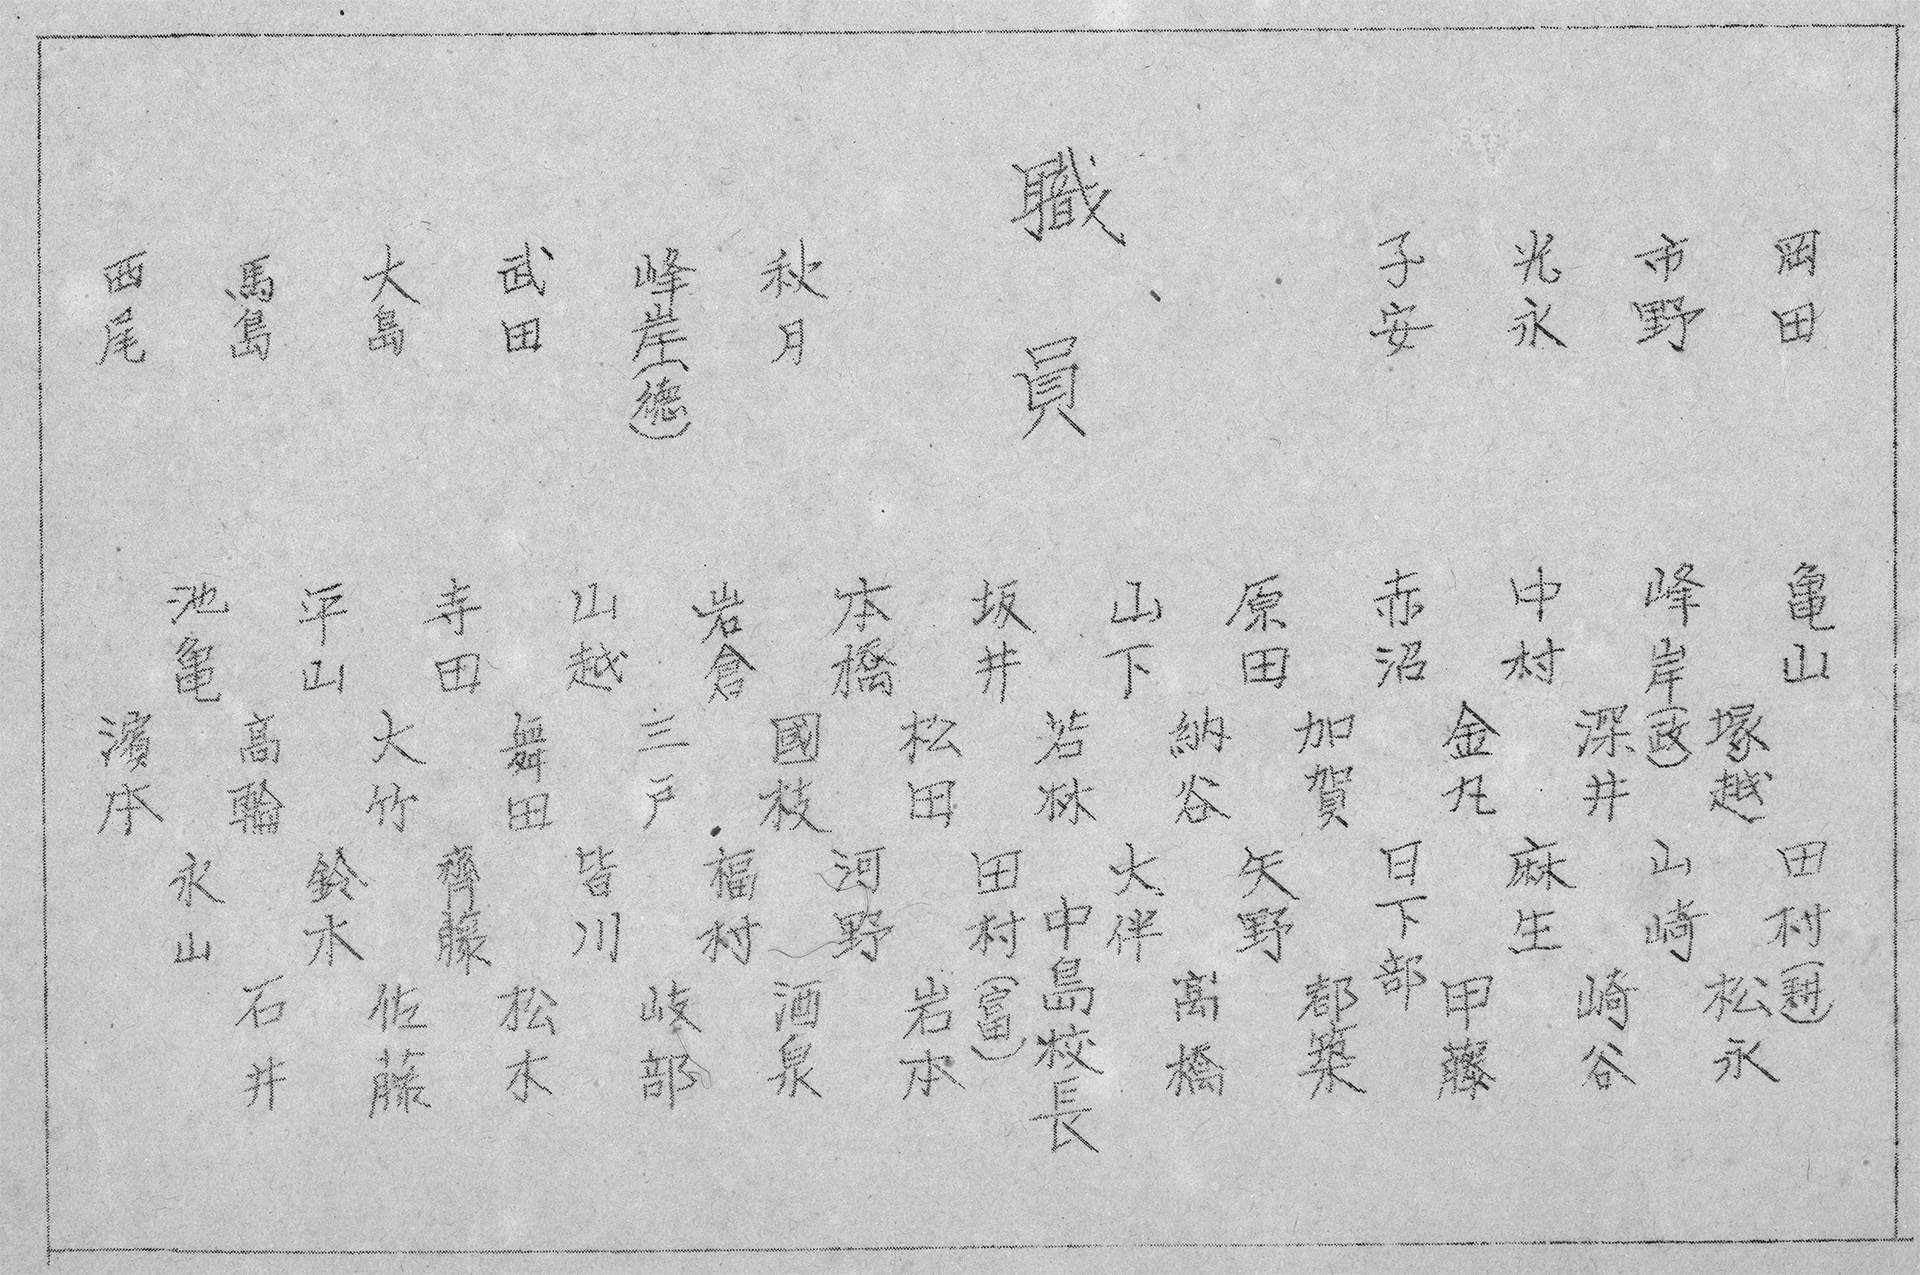 職員
岡田
市野
光永
子安
秋月
峰岸(徳)
武田
大島
馬島
西尾
亀山
峰岸(政)
中村
赤沼
原田
山下
坂井
本橋
岩倉
山越
寺田
平山
池亀
塚越
深井
金丸
加賀
納谷
若林
松田
國枝
三戸
舞田
大竹
高輪
濱本
田村(耕)
山崎
麻生
日下部
矢野
大伴
田村(富)
河野
福村
皆川
齊藤
鈴木
永山
松永
崎谷
甲藤
都築
高橋
中島校長
岩本
酒泉
岐部
松木
佐藤
石井